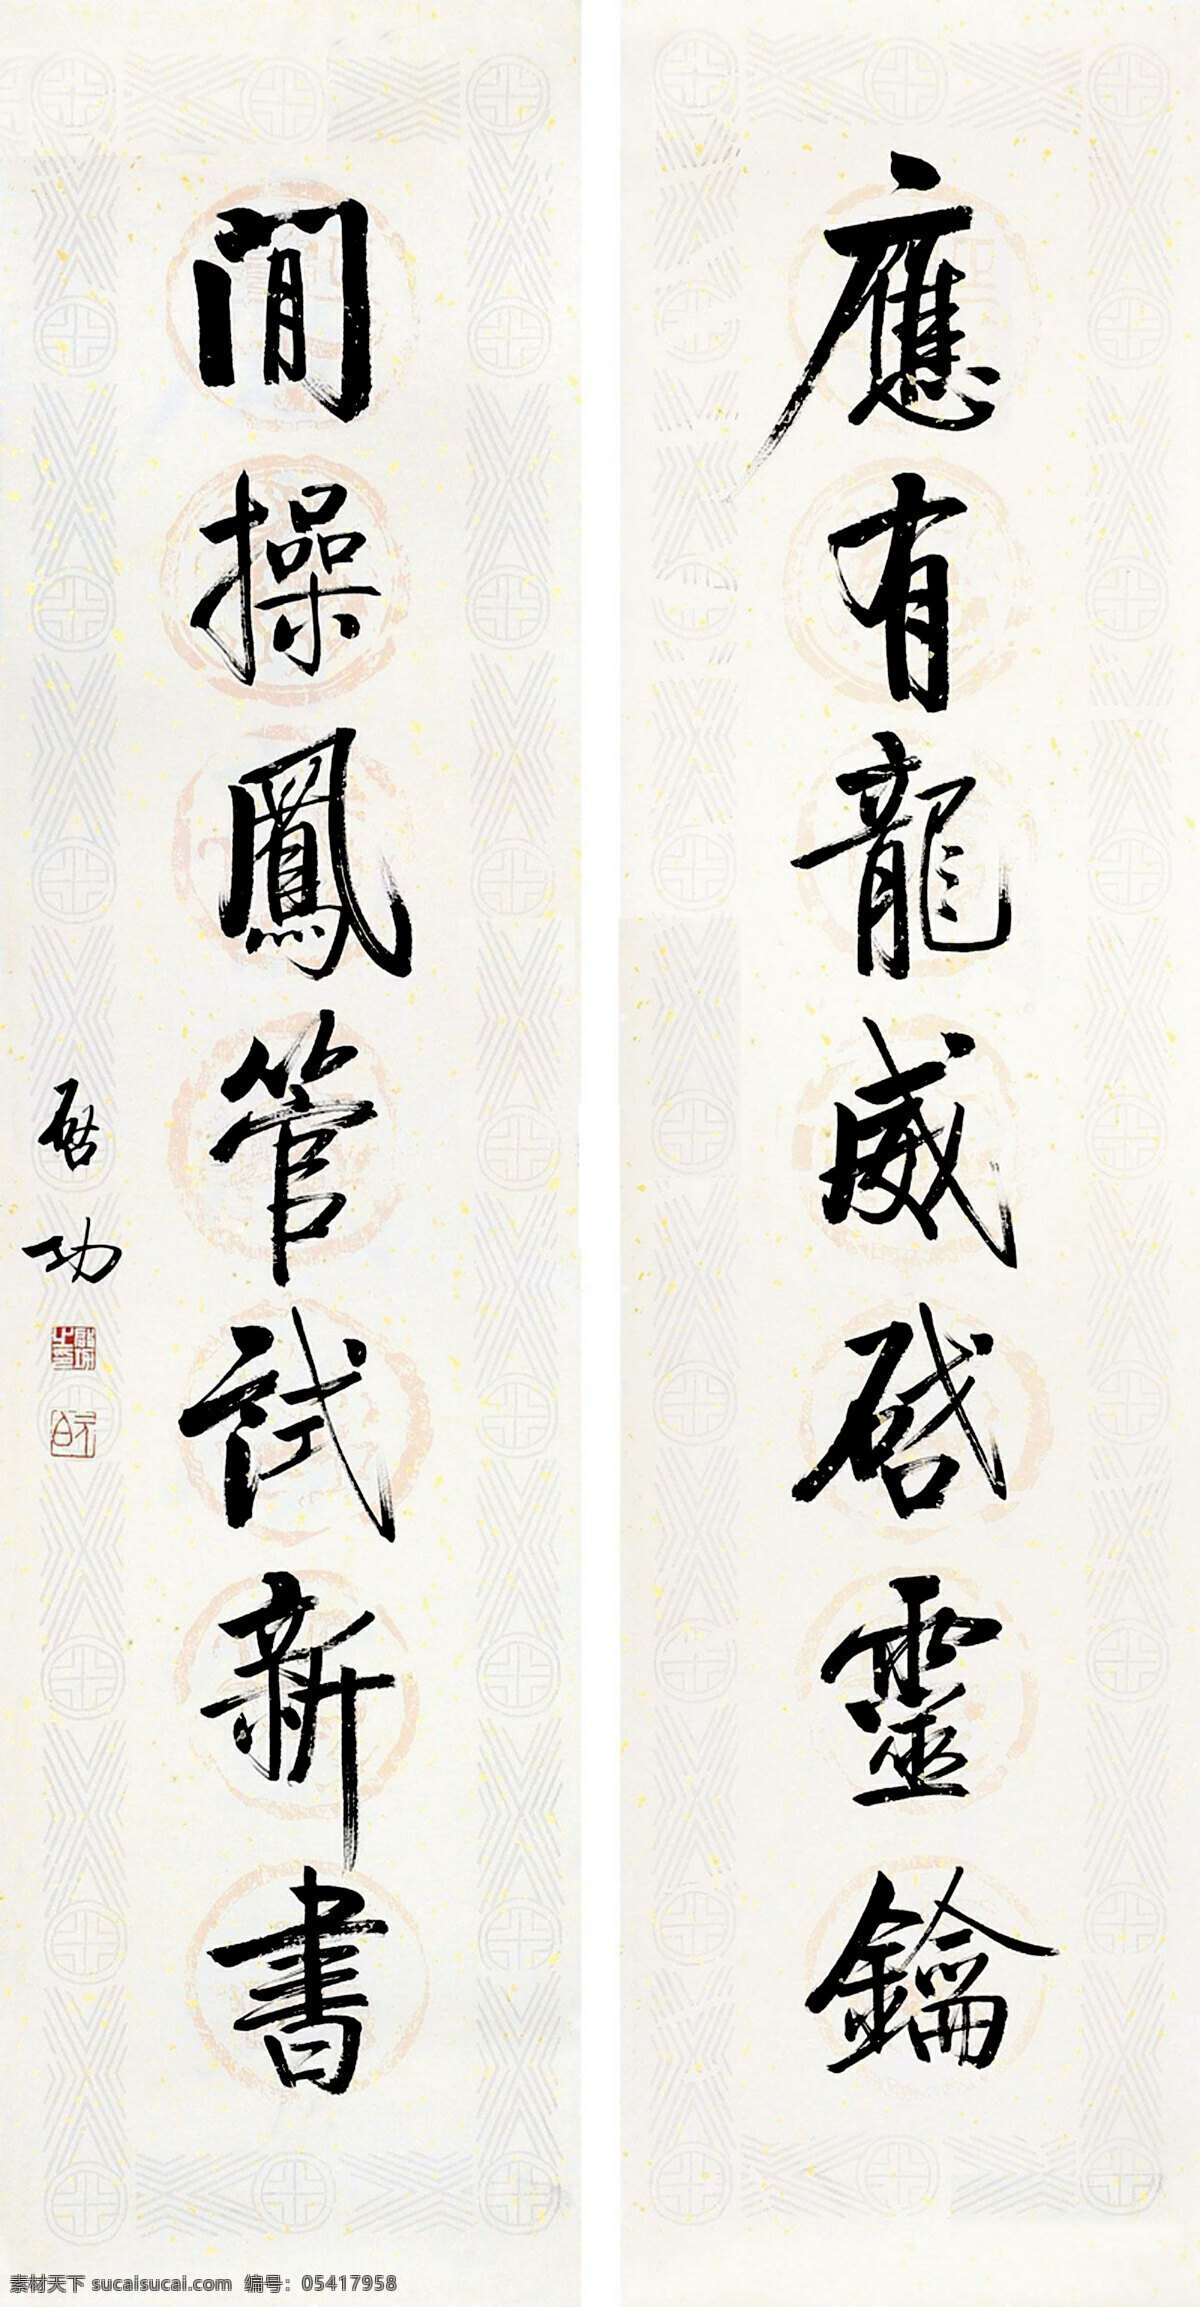 應有龍威啓靈鑰
閒操鳳管試新書
启功
啓功之印
元白
素材天下 sucaisucai.com 编号：05417958